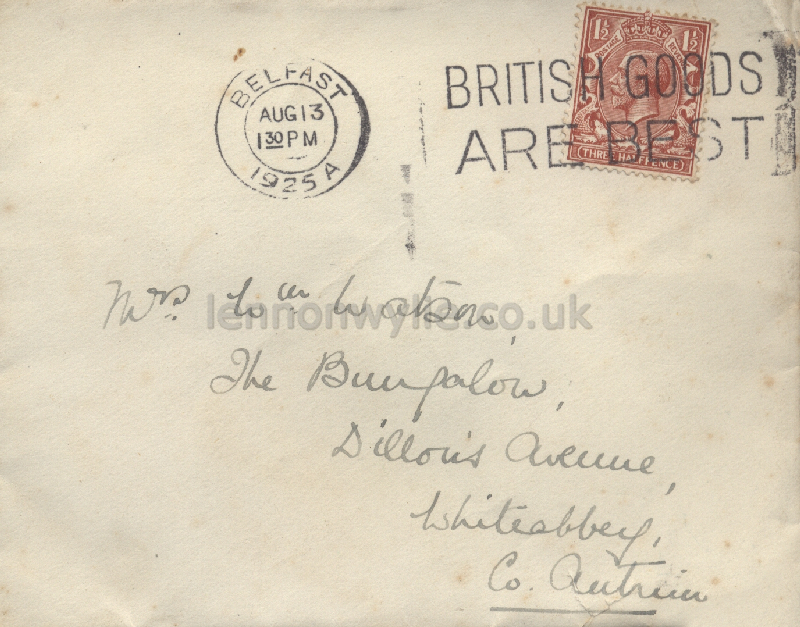 BELFAST
AUG 13
1 30 PM
1925 A
BRITISH GOODS
ARE BEST
1½ 1½
POSTAGE
(THREE HALFPENCE)
Mrs. Wm Watson,
lennonwylie.co.uk
The Bungalow,
Dillon's Avenue,
Whiteabbey,
Co. Antrim